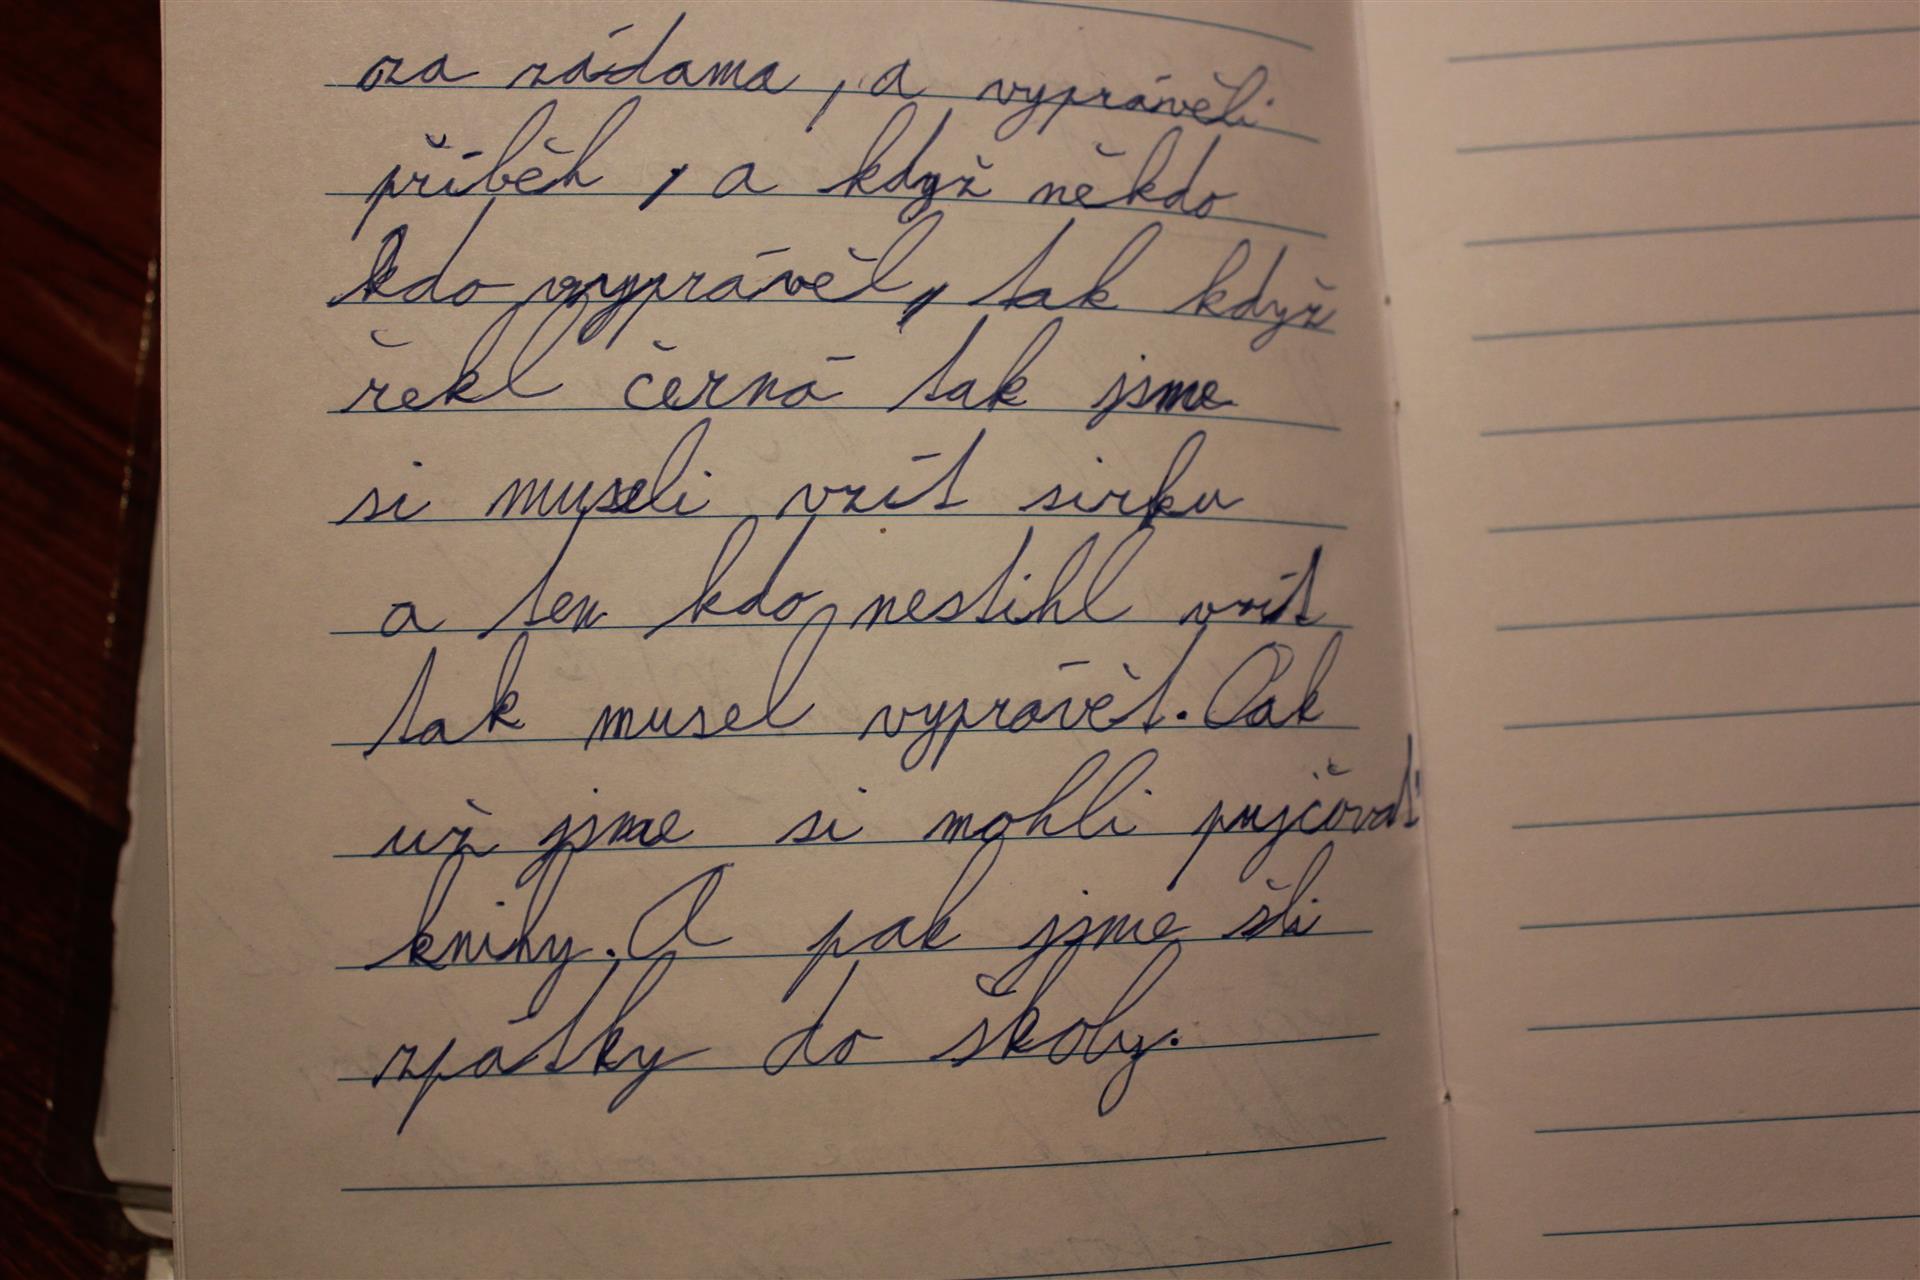 za zádama, a vyprávěli
příběh, a když někdo
kdo vyprávěl, tak když
řekl černá tak jsme
si museli vzít sirku
a ten kdo nestihl vzít
tak musel vyprávět. Pak
už jsme si mohli pujčovat
knihy. A pak jsme šli
zpátky do školy.